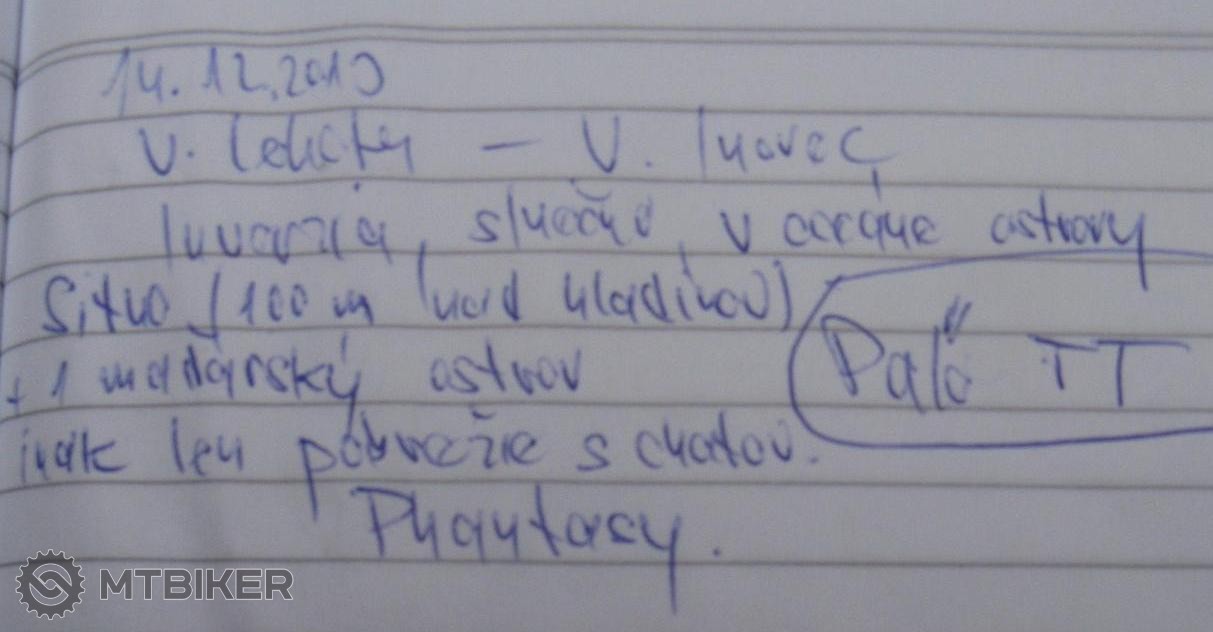 14.12.2013
V. – V. Inovec
Inverzia, slnečno, v oceáne ostrovy
Sitno 1100 m (nad hladinou)
+ 1 maďarský ostrov
Paľo TT
inak len pobrežie s chatou.
Phantasy.
MTBIKER